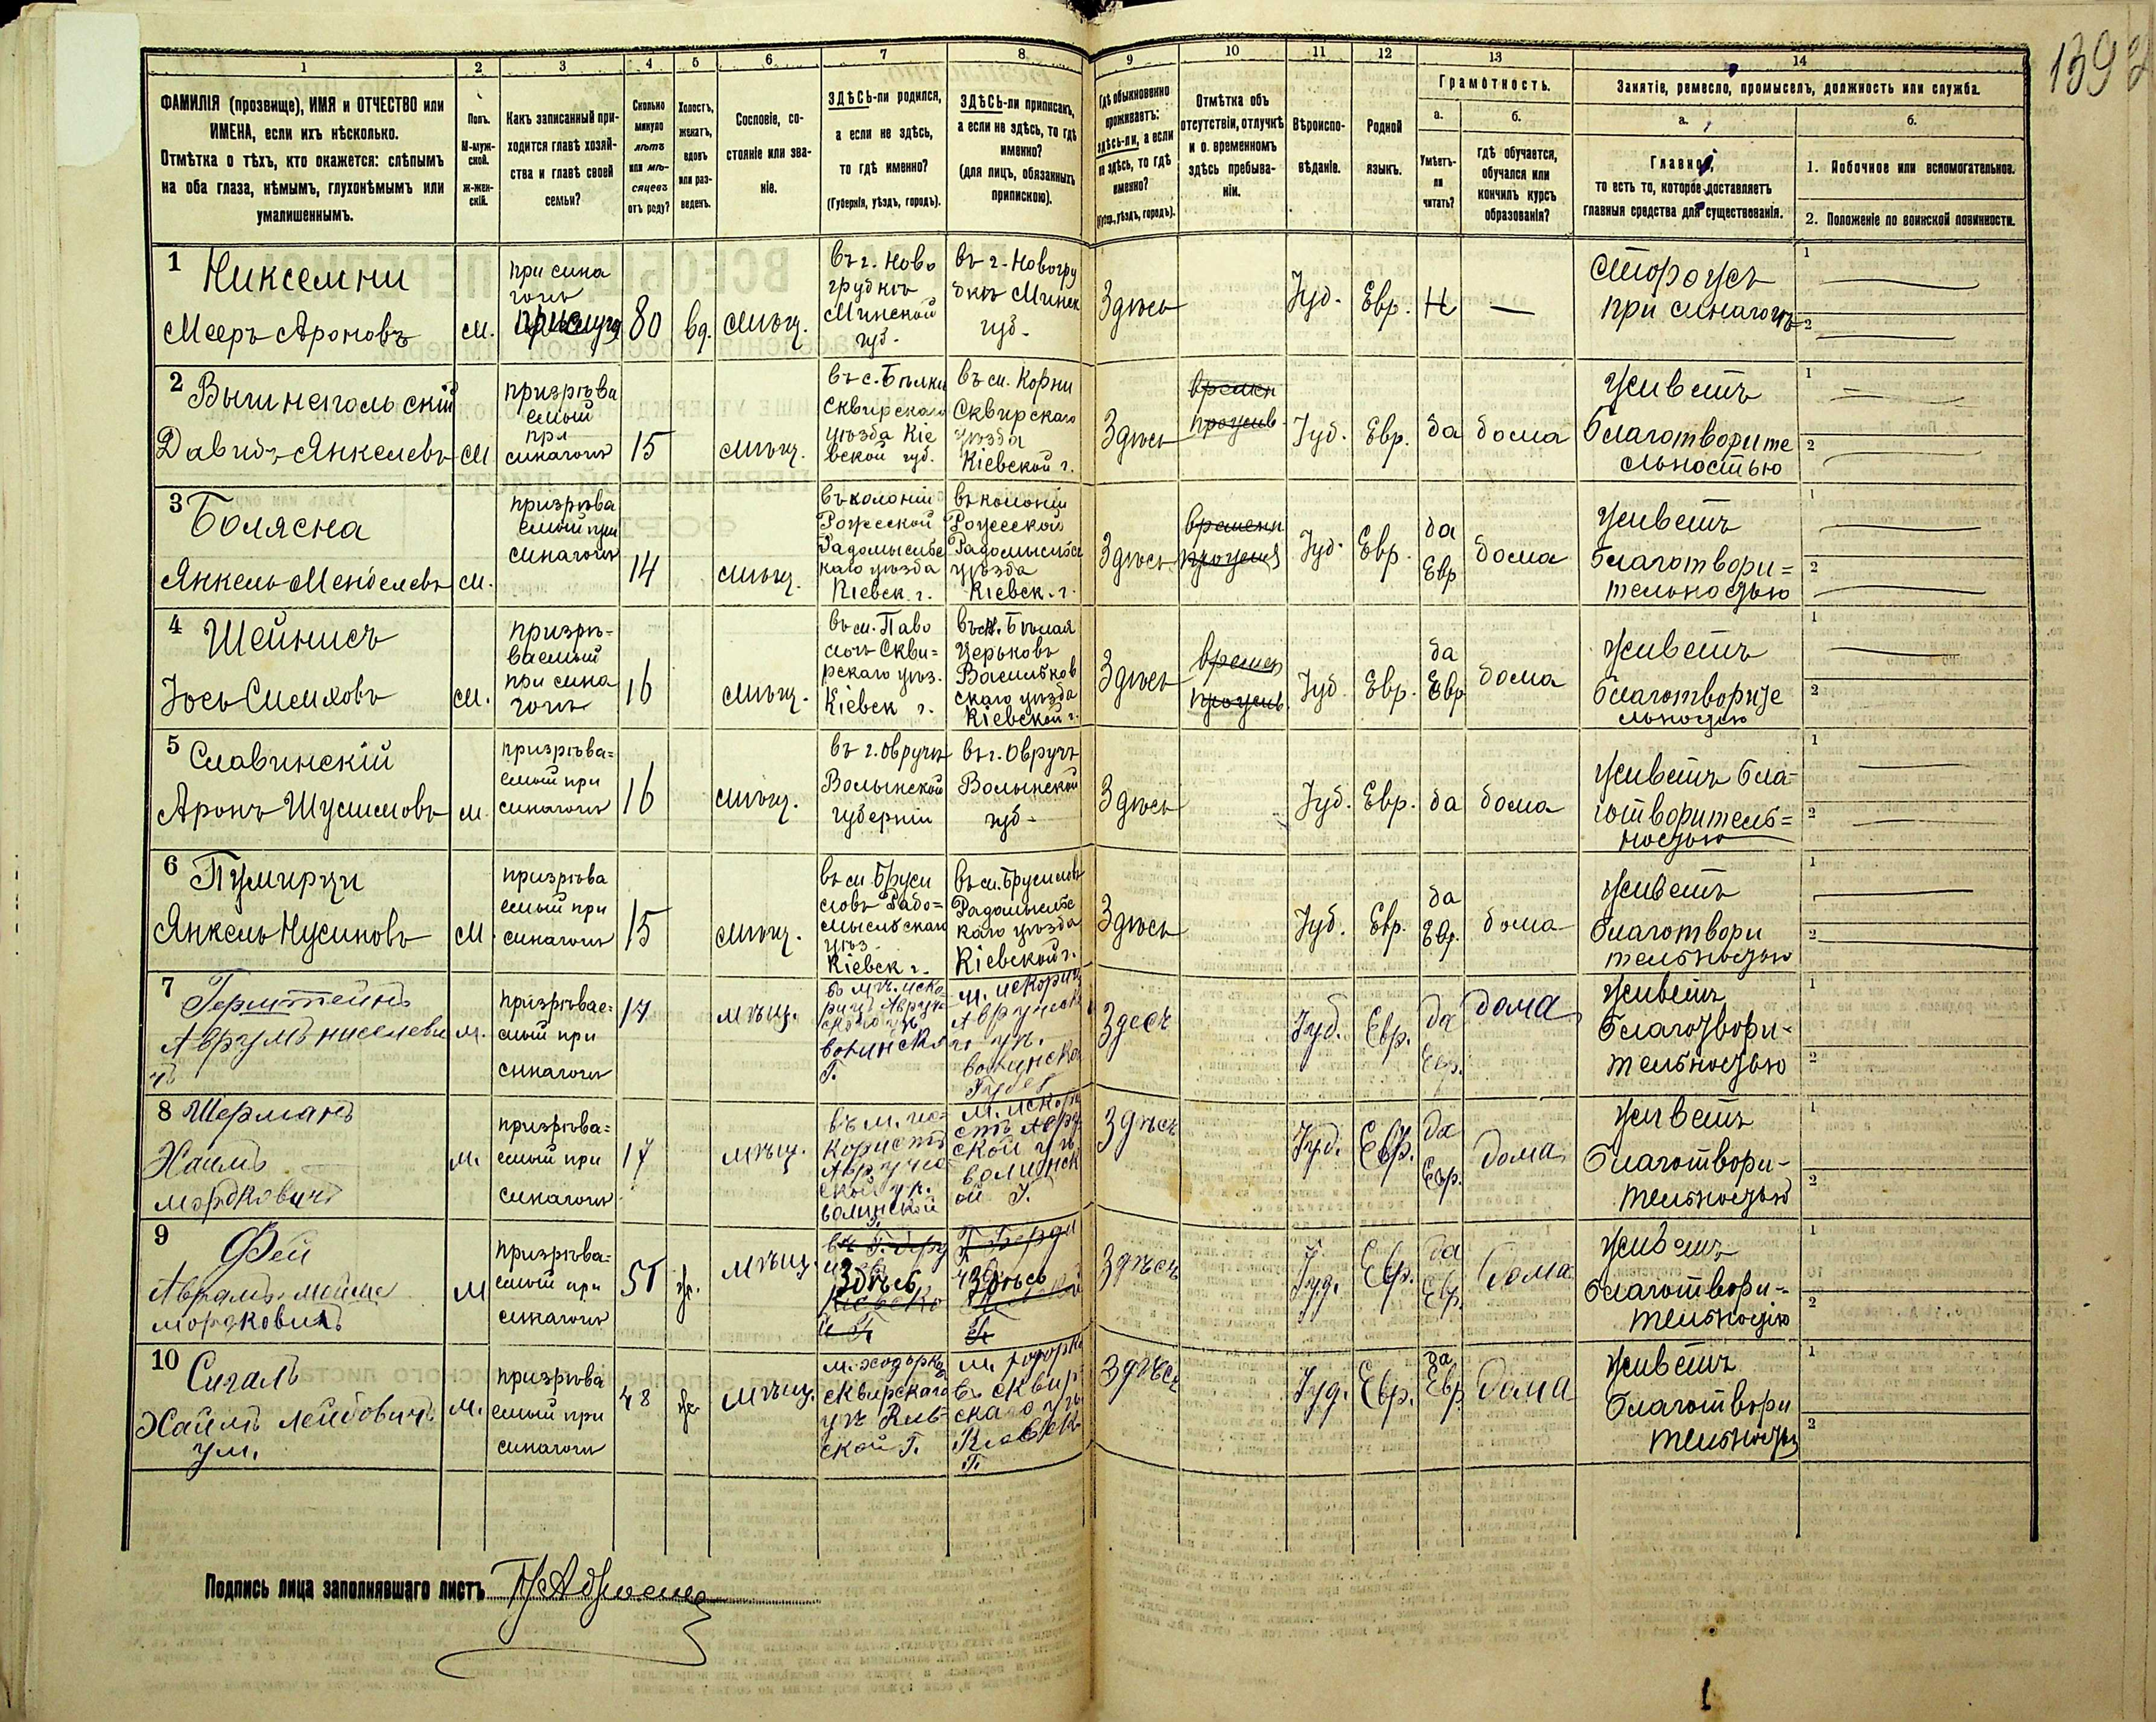 139
1
2
3
4
5
6
7
8
9
10
11
12
13
14
ФАМИЛІЯ (прозвище), ИМЯ и ОТЧЕСТВО или
ИМЕНА, если ихъ нѣсколько.
Отмѣтка о тѣхъ, кто окажется: слѣпымъ
на оба глаза, нѣмымъ, глухонѣмымъ или
умалишеннымъ.
Полъ.
М-муж-
ской.
Ж-жен-
скій.
Какъ записанный при-
ходится главѣ хозяй-
ства и главѣ своей
семьи?
Сколько
минуло
лѣтъ
или мѣ-
сяцевъ
отъ роду?
Холостъ,
женатъ,
вдовъ
или раз-
веденъ.
Сословіе, со-
стояніе или зва-
ніе.
ЗДѢСЬ-ли родился,
а если не здѣсь,
то гдѣ именно?
(Губернія, уѣздъ, городъ).
ЗДѢСЬ-ли приписанъ,
а если не здѣсь, то гдѣ
именно?
(для лицъ, обязанныхъ
припискою).
Гдѣ обыкновенно
проживаетъ:
здѣсь-ли, а если
не здѣсь, то гдѣ
именно?
(Губер., уѣздъ, городъ).
Отмѣтка объ
отсутствіи, отлучкѣ
и о временномъ
здѣсь пребыва-
ніи.
Вѣроиспо-
вѣданіе.
Родной
языкъ.
Грамотность.
а.
Умѣетъ-
ли
читать?
б.
гдѣ обучается,
обучался или
кончилъ курсъ
образованія?
Занятіе, ремесло, промыселъ, должность или служба.
а.
Главное,
то есть то, которое доставляетъ
главныя средства для существованія.
б.
1. Побочное или вспомогательное.
2. Положеніе по воинской повинности.
1 Никселни
Мееръ Ароновъ
м.
при сина
гогѣ
прислуга
80
вд.
мѣщ.
въ г. Ново
грудкѣ
Минской
губ.
въ г. Новогру
дкѣ Минск
губ.
Здѣсь
Іуд.
Евр.
Н
—
Сторожъ
при синагогѣ
1
2
2 Вышнепольскій
Давидъ Янкелевъ
м
призрѣва
емый
при
синагогѣ
15
мѣщ.
въ с. Бѣлки
Сквирскаго
уѣзда Кіе
вской губ.
въ м. Корни
Сквирскаго
уѣзда
Кіевской г.
Здѣсь
времен
прожив
Іуд.
Евр.
да
дома
Живетъ
благотворите
льностью
1
2
3 Болясна
Янкель Менделевъ
м.
призрѣва
емый при
синагогѣ
14
мѣщ.
въ колоніи
Рожеской
Радомысльс
каго уѣзда
Кіевск. г.
въ колоніи
Рожеской
Радомысльс
уѣзда
Кіевск. г.
Здѣсь
временн
Іуд.
Евр.
да
Евр
дома
Живетъ
благотвори=
тельностью
1
2
4 Шейнисъ
Іось Симховъ
м.
призрѣ-
ваемый
при сина
гогѣ
16
мѣщ.
въ м. Паво
лочь Скви=
рскаго уѣз.
Кіевск г.
въ м. Бѣлая
Церьковъ
Васильков
скаго уѣзда
Кіевской г.
Здѣсь
времен
прожив
Іуд
Евр.
да
Евр
дома
Живетъ
благотворите
льностью
1
2
5 Славинскій
Аронъ Шулимовъ
м.
призрѣва=
емый при
синагогѣ
16
мѣщ.
въ г. Овручѣ
Волынской
губерніи
въ г. Овручѣ
Волынской
губ.
Здѣсь
Іуд.
Евр.
да
дома
Живетъ бла-
готворитель=
ностью
1
2
6 Пумирци
Янкель Нусиновъ
м.
призрѣва
емый при
синагогѣ
15
мѣщ.
въ м. Бруси
ловъ Радо=
мысльскаго
уѣз.
Кіевск г.
въ м. Брусиловъ
Радомысльс
каго уѣзда
Кіевской г.
Здѣсь
Іуд.
Евр.
да
Евр.
дома
Живетъ
благотвори
тельностью
1
2
7 Герштейнъ
Аврумъ
м.
призрѣвае=
емый при
синагогѣ
17
мѣщ.
Г.
м. искорщ
Здесъ
Іуд.
Евр.
да
Евр.
дома
Живетъ
благотвори-
тельностью
1
2
8 Шерманъ
Хаимъ
мордковичъ
м.
призрѣва=
емый при
синагогѣ
17
мѣщ.
въ м. ис-
волинской
волинск
ой Г.
Здѣсъ
Іуд.
Евр.
да
Евр.
дома
Живетъ
благотвори-
тельностью
1
2
9 Фей
Аврамъ мойше
мордковичъ
м
призрѣва-
емый при
синагогѣ
мѣщ.
Здѣсь
Здѣсь
Здѣсъ
Іуд.
Евр.
да
Евр.
дома
Живетъ
благотвори-
тельностію
1
2
10 Сигалъ
Хаимъ лейбовичъ
ум.
м.
призрѣва
емый при
синагогѣ
48
мѣщ.
м. ходоркъ
сквирскаго
ской Г.
м. ходорк
въ сквир
скаго уѣ
Г.
Здѣсь
Іуд.
Евр.
да
Евр
дома
Живетъ
благотвори
тельностью
1
2
Подпись лица заполнявшаго листъ